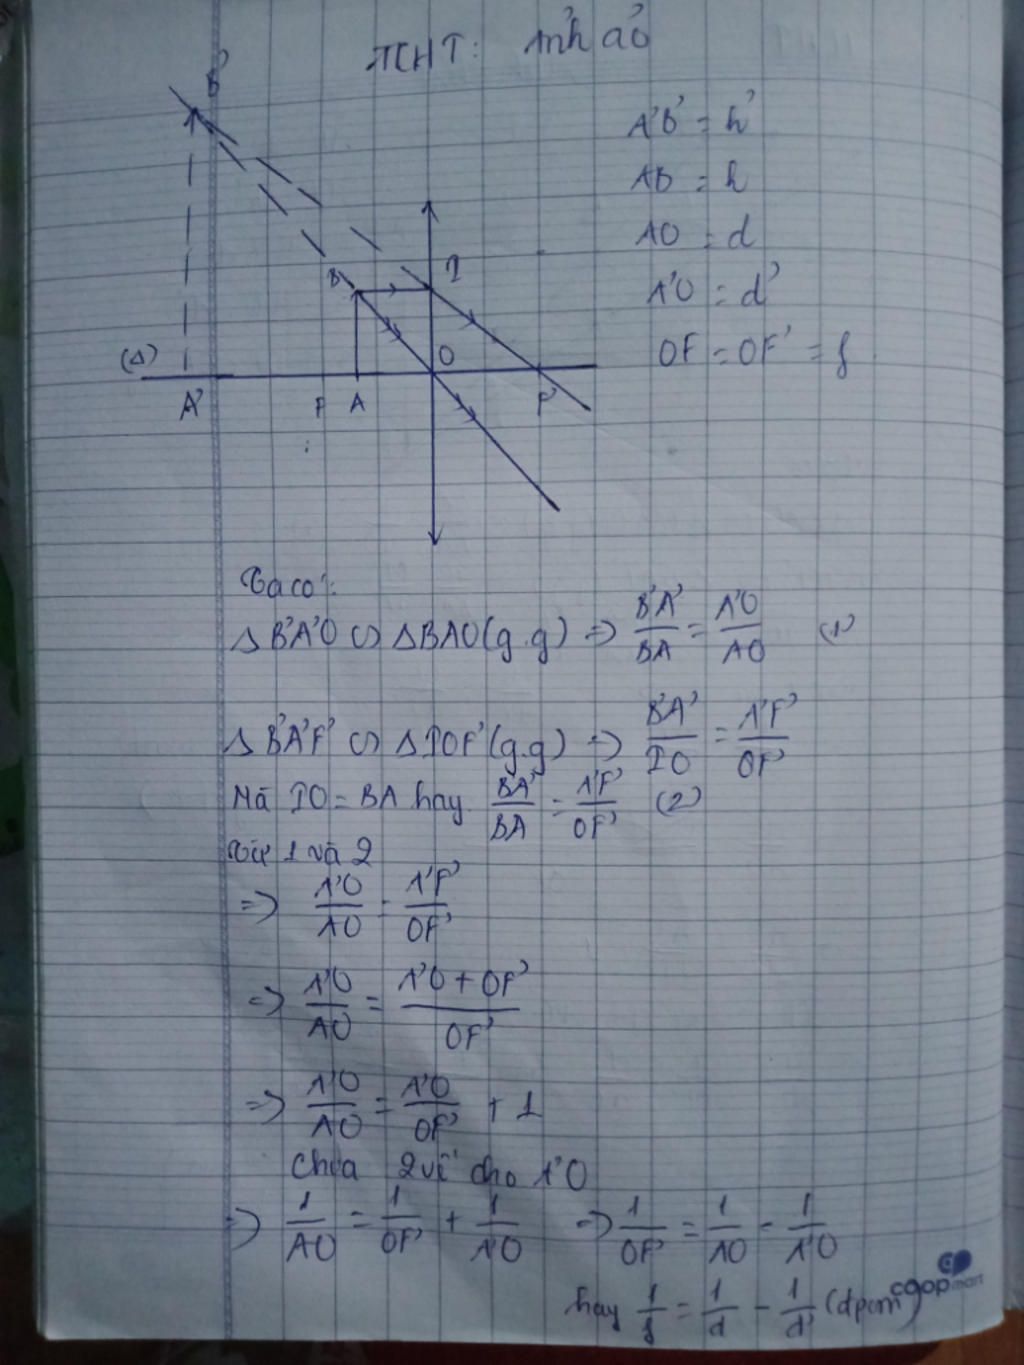 TKHT: Ảnh ảo
B'
A'B' = h'
AB = h
AO = d
A'O = d'
OF = OF' = f
B I
(Δ) O
A' F A F'
Ta có:
Δ B'A'O ∽ Δ BAO (g.g) => B'A'/BA = A'O/AO (1)
Δ B'A'F' ∽ Δ IOF' (g.g) => B'A'/IO = A'F'/OF'
Mà IO = BA hay B'A'/BA = A'F'/OF' (2)
Từ 1 và 2
=> A'O/AO = A'F'/OF'
=> A'O/AO = (A'O + OF')/OF'
=> A'O/AO = A'O/OF' + 1
Chia 2 vế cho A'O
=> 1/AO = 1/OF' + 1/A'O => 1/OF' = 1/AO - 1/A'O
hay 1/f = 1/d - 1/d' (đpcm)
coopmart